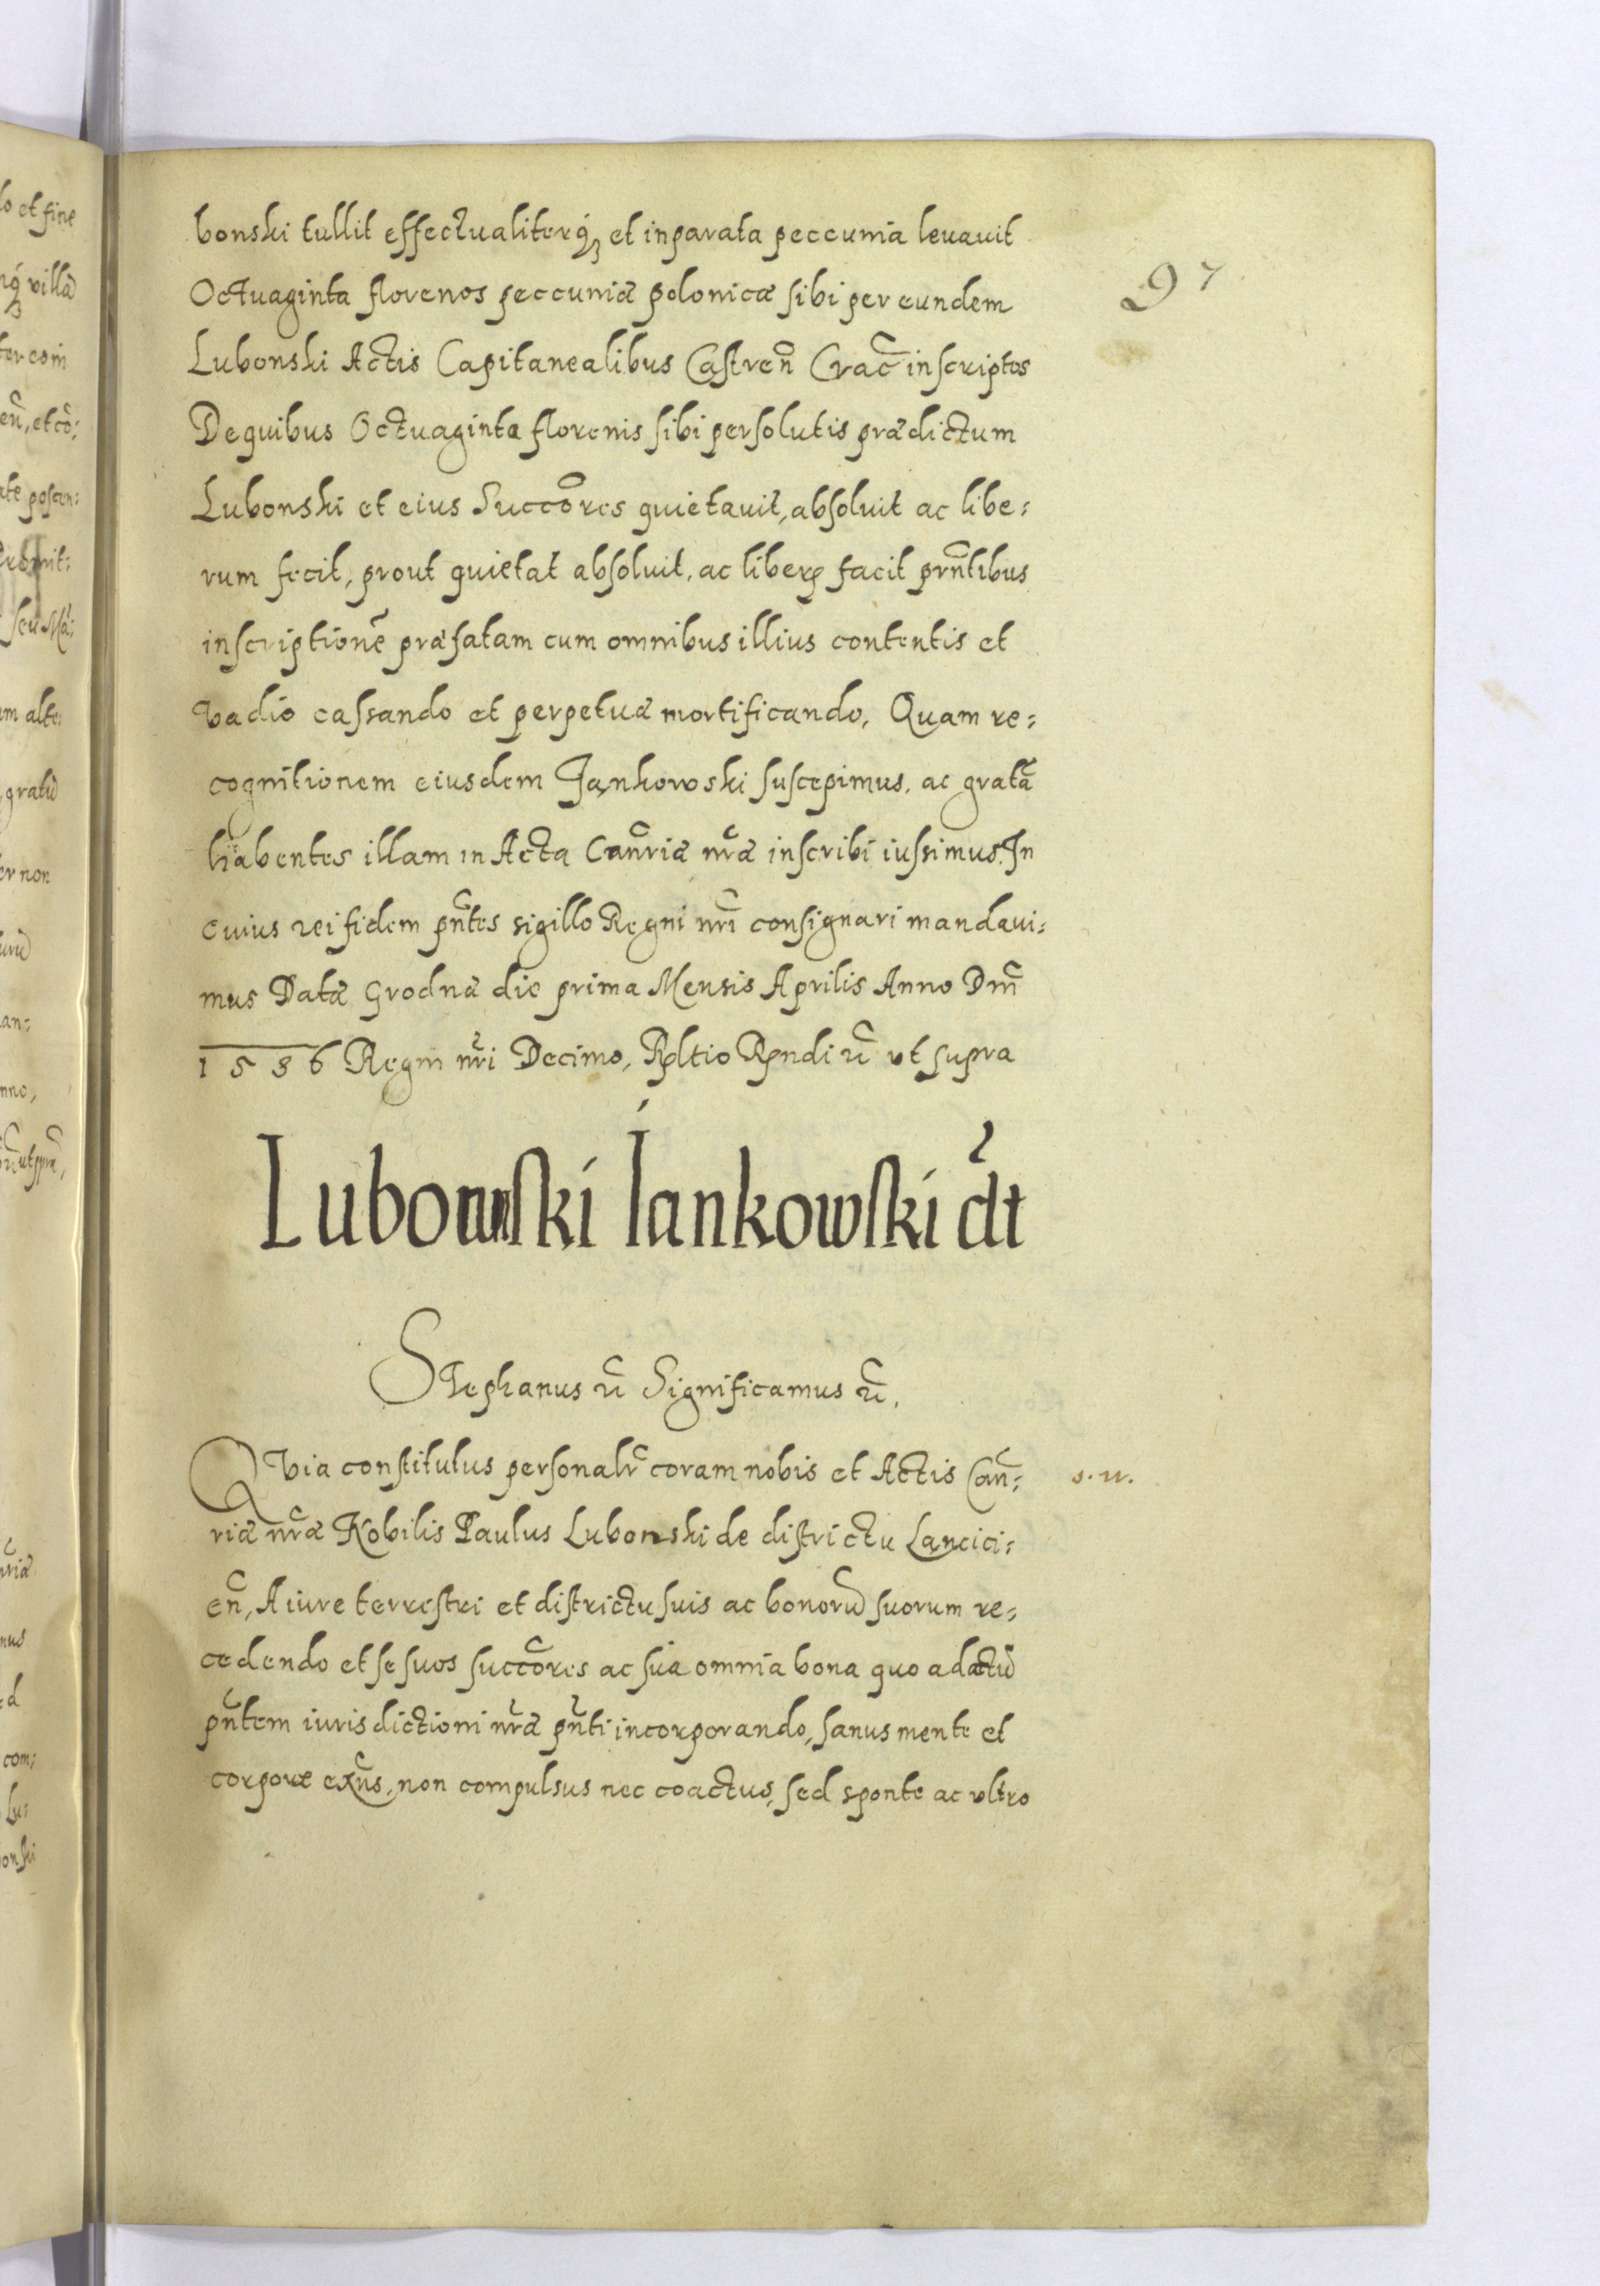 bonski tullit effectualiterq́ꝫ et in parata peccunia levavit
97
Octuaginta florenos peccuniæ polonicæ sibi per eundem
Lubonski Actis Capitanealibus Castren̄ Crac̄ inscriptos
De quibus Octuaginta florenis sibi persolutis prædictum
Lubonski et eius Succōres quietavit, absoluit ac libe:
rum fecit, prout quietat absoluit, ac liberꝝ facit prn̄tibus
inscriptionē præfatam cum omnibus illius contentis et
Vadio cassando et perpetuæ mortificando, Quam re:
cognitionem eiusdem Jankowski suscepimus, ac gratā
habentes illam in Acta Can̄riæ nr̄æ inscribi iussimus. In
cuius rei fidem pn̄tes sigillo Regni nr̄i consignari mandavi:
mus Datæ Grodnæ die prima Mensis Aprilis Anno Dn̄i
1586 Regni nr̄i Decimo, Rltio Rndi u̅ ut supra
Lubonski Iankowski dt
Stephanus u̅ Significamus u̅.
Quia constitutus personalr̄ coram nobis et Actis Can̄:
s. u.
riæ nr̄æ Nobilis Paulus Lubonski de districtu Lancici:
en̄, A iure terrestri et districtu suis ac bonorū suorum re:
cedendo et se suos succōres ac sua omnia bona quo ad actū
pn̄tem iurisdictioni nr̄æ pn̄ti incorporando, sanus mente et
corpore exn̄s, non compulsus nec coactus, sed sponte ac ultro